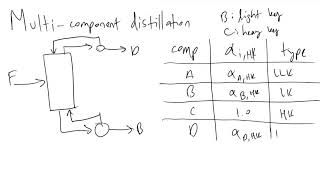 Multi-component distillation
B: light key
C: heavy key
D
F
B
comp αi,HK type
A αA,HK LLK
B αB,HK LK
C 1.0 HK
D αD,HK